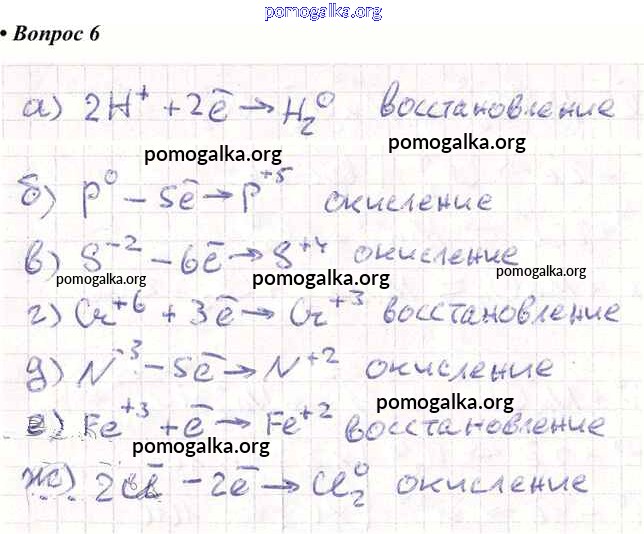 pomogalka.org
• Вопрос 6
а) 2H⁺ + 2ē → H₂⁰ восстановление
pomogalka.org pomogalka.org
б) P⁰ − 5ē → P⁺⁵ окисление
в) S⁻² − 6ē → S⁺⁴ окисление
pomogalka.org pomogalka.org pomogalka.org
г) Cr⁺⁶ + 3ē → Cr⁺³ восстановление
д) N⁻³ − 5ē → N⁺² окисление
pomogalka.org
е) Fe⁺³ + ē → Fe⁺² восстановление
pomogalka.org
ж) 2Cl⁻ − 2ē → Cl₂⁰ окисление